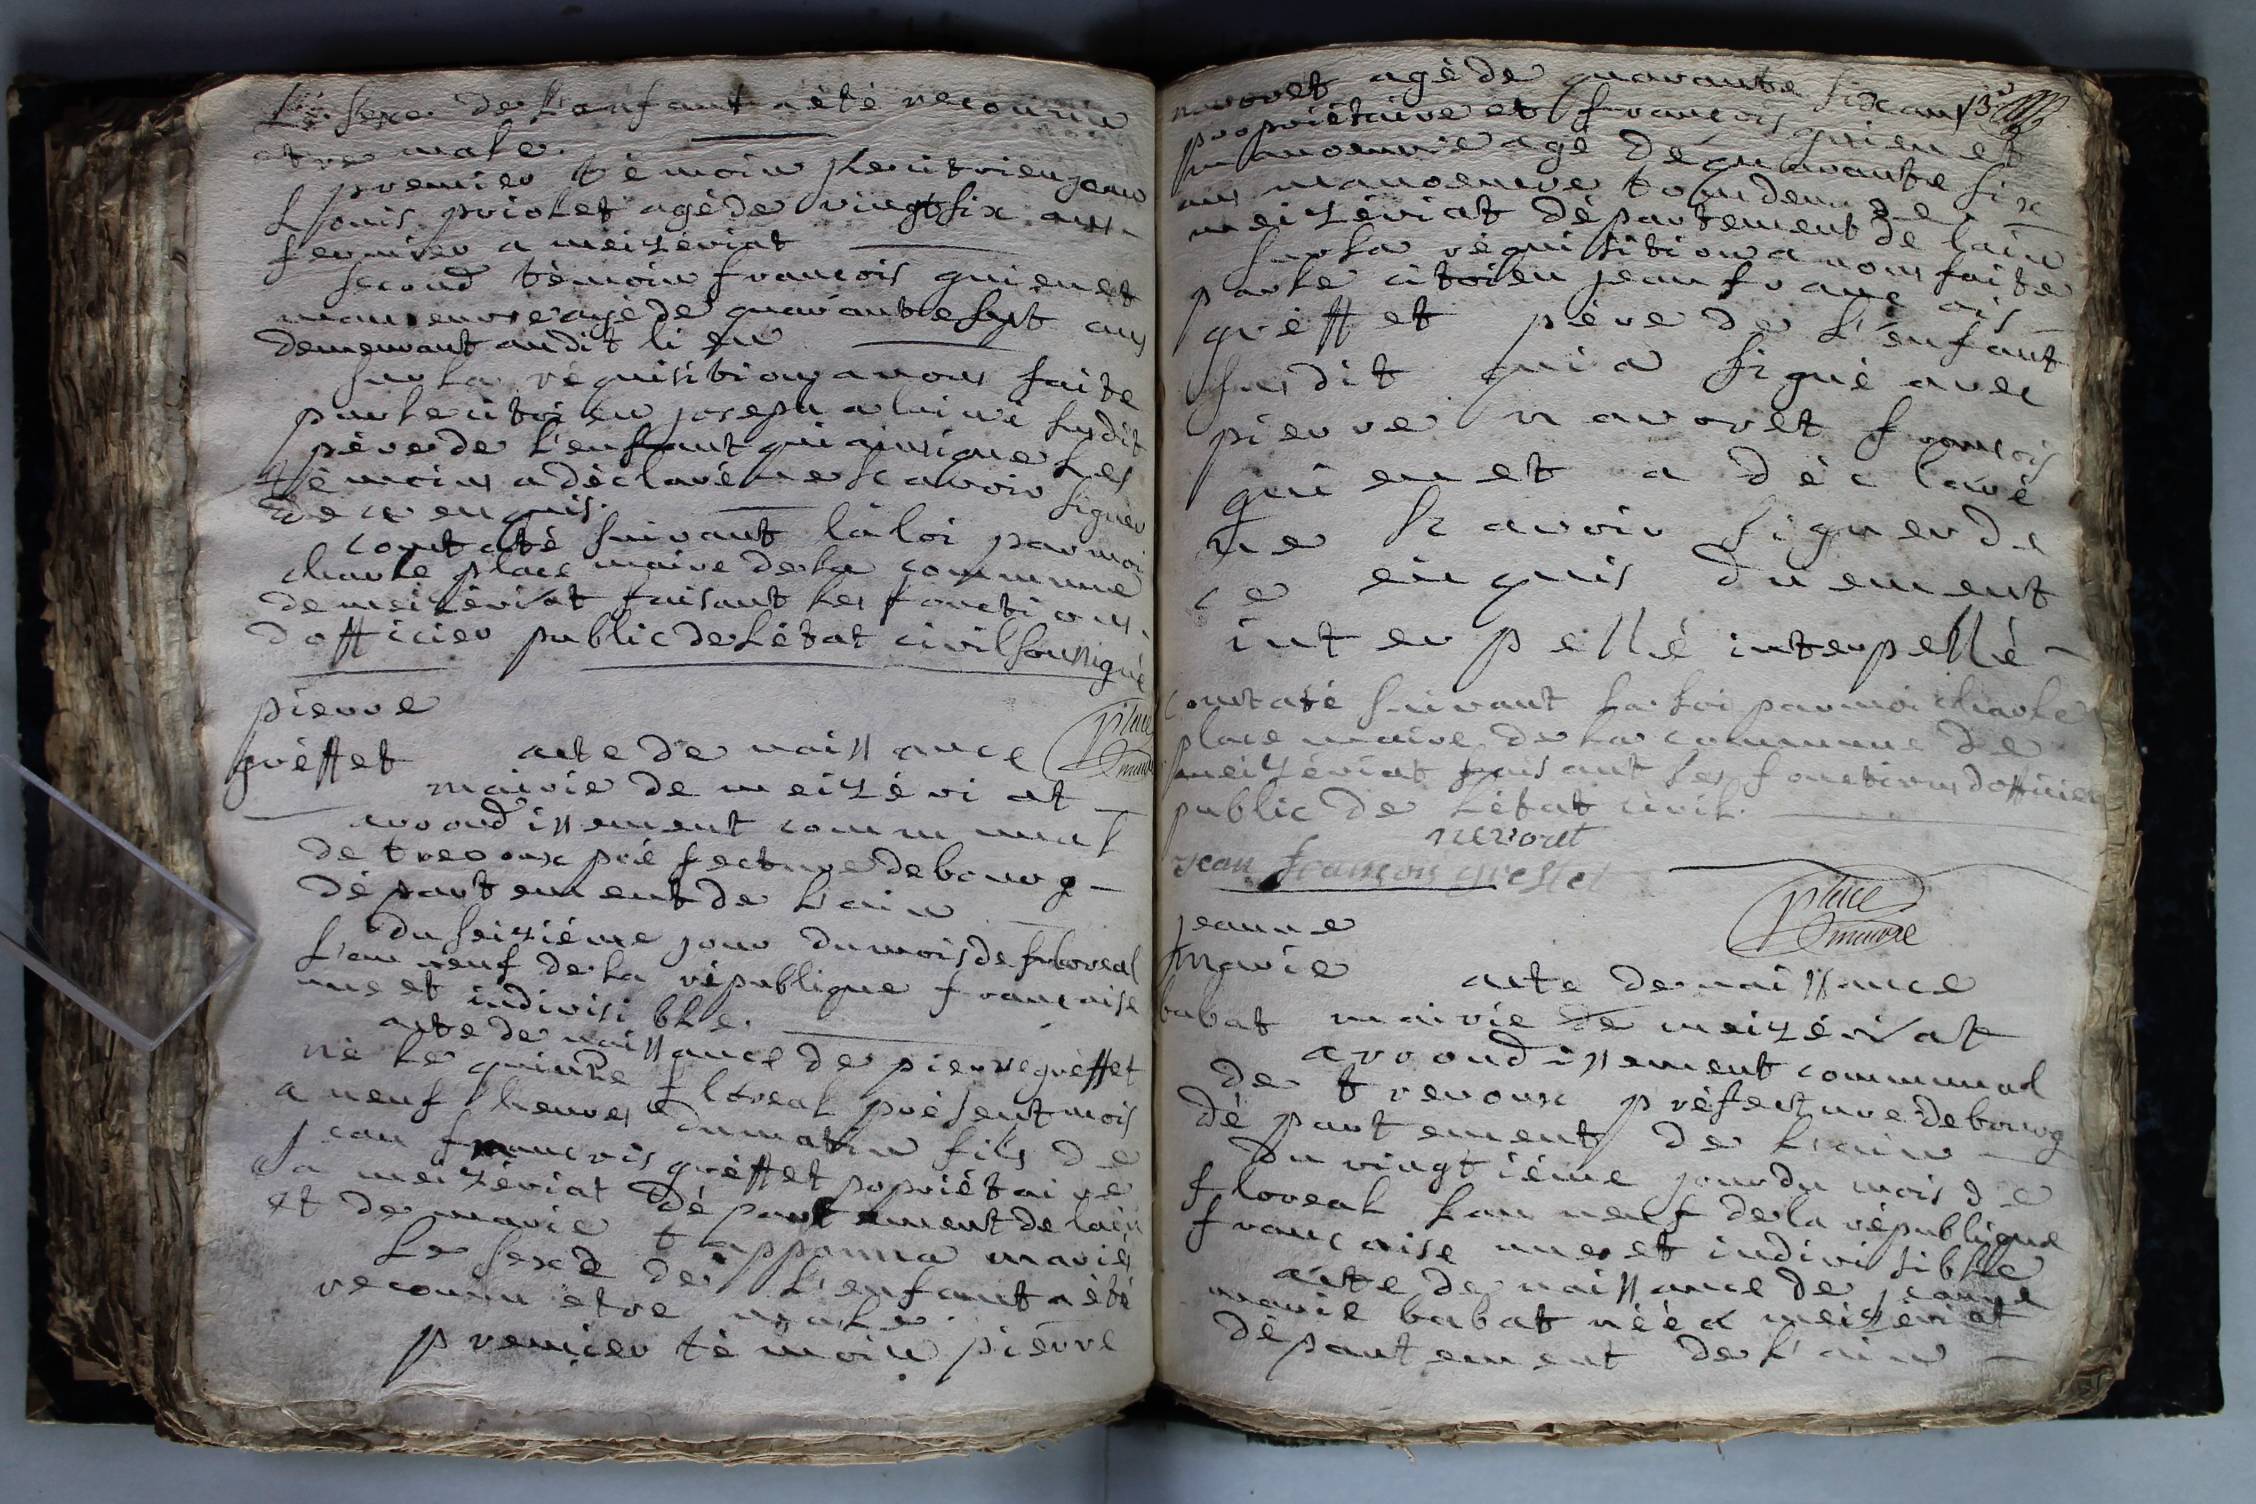 Le sexe de l'enfant a été reconnu
etre male.
premier témoin le citoien jean
Louis priolet agé de vingt six ans
fermier a meizériat
second témoin françois guienet
manoeuvre agé de quarante sept ans
demeurant audit lieu
sur la réquisition a nous faite
par le citoien joseph alainé susdit
père de l'enfant qui ainsi que les
témoins a déclaré ne scavoir signer
de ce enquis.
contaté suivant la loi par moi
charle place maire de la commune
de meizériat faisant les fonctions
dofficier public de l'état civil soussigné
pierre
grèffet
acte de naissance
place
maire
mairie de meizériat
arrondissement communal
de trevoux préfecture de bourg
département de l'ain
du seizième jour du mois de floreal
l'an neuf de la république française
une et indivisible.
acte de naissance de pierre grèffet
né le quinze floreal présent mois
a neuf heures du matin fils de
jean françois grèffet popriétaire
a meizériat département de lain
et de marie tappana mariés
Le sexe de l'enfant a été
reconnu etre male.
premier témoin pierre
navoret agé de quarante six ans 13e
propriétaire et françois guienet
manoeuvre agé de quarante six
ans manoeuvre tous deux de
meizériat département de lain
sur la réquisition a nous faite
par le citoien jean françois
grèffet père de l'enfant
susdit qui a signé avec
pierre navoret françois
guienet a déclaré
ne scavoir signer de
ce enquis duement
interpellé interpellé
contaté suivant la loi par moi charle
place maire de la commune de
meizériat faisant les fonctions dofficier
public de l'état civil.
nevoret
jean françois greffet
place
maire
jeanne
marie
babat
acte de naissance
mairie de meizériat
arrondissement communal
de trevoux préfecture de bourg
département de l'ain
du vingtième jour du mois de
floreal l'an neuf de la république
française une et indivisible
acte de naissance de jeanne
marie babat néé a meizériat
département de l'ain